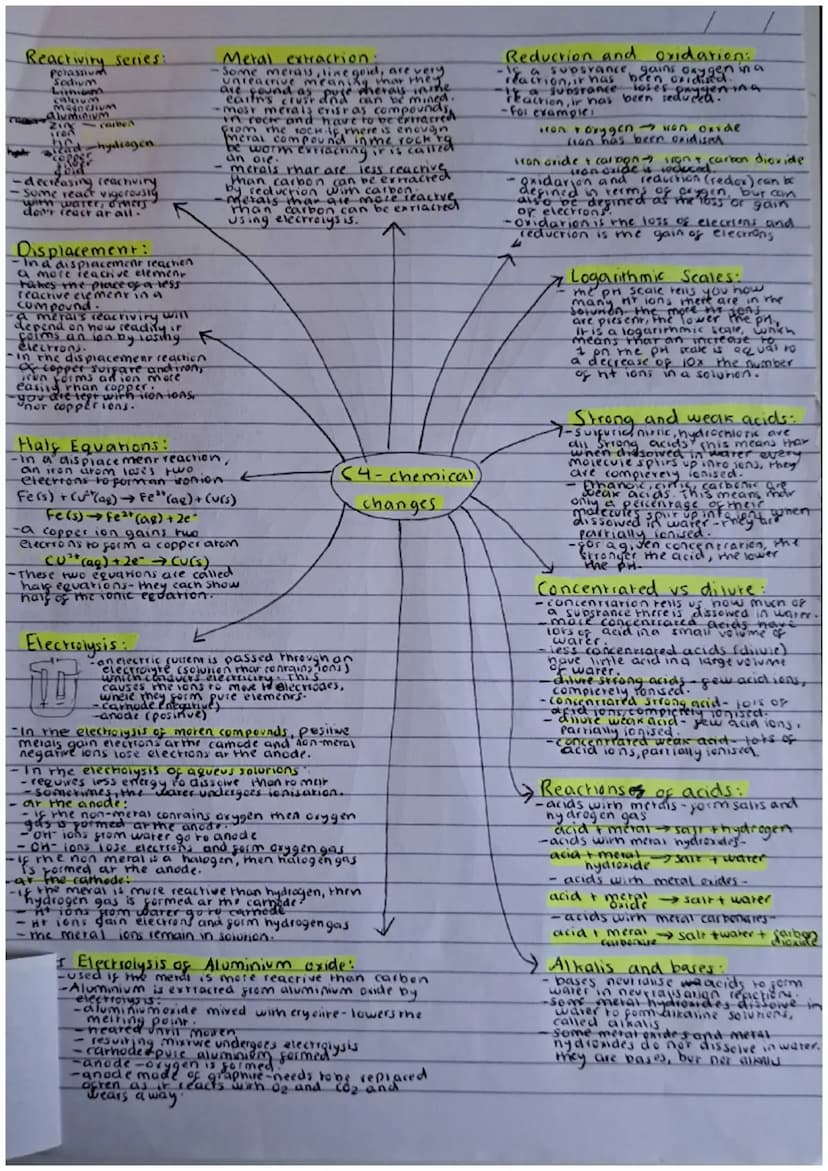 Reactivity series:
potassium
sodium
lithium
calcium
magnesium
aluminium
zinc - carbon
iron
tin
lead - hydrogen
copper
silver
gold
- decreasing reactivity
- some react vigorously
with water, others
don't react at all.
Metal extraction:
- Some metals, like gold, are very
unreactive meaning that they
are found as pure metals in the
earth's crust and can be mined.
- most metals exist as compounds
in rock and have to be extracted
from the rock. if there is enough
metal compound in the rock to
be worth extracting it is called
an ore.
- metals that are less reactive
than carbon can be extracted
by reduction with carbon.
- Metals that are more reactive
than carbon can be extracted
using electrolysis.
Reduction and oxidation:
- If a substance gains oxygen in a
reaction, it has been oxidised.
- If a substance loses oxygen in a
reaction, it has been reduced.
- For example:
iron + oxygen → iron oxide
iron has been oxidised
iron oxide + carbon → iron + carbon dioxide
iron oxide is reduced.
- oxidation and reduction (redox) can be
defined in terms of oxygen, but can
also be defined as the loss or gain
of electrons.
- Oxidation is the loss of electrons and
reduction is the gain of electrons
Displacement:
- In a displacement reaction
a more reactive element
takes the place of a less
reactive element in a
compound.
- a metal's reactivity will
depend on how readily it
forms an ion by losing
electrons.
- in the displacement reaction
of copper sulfate and iron,
iron forms an ion more
easily than copper.
- you are left with iron ions,
not copper ions.
Logarithmic Scales:
- the pH scale tells you how
many H+ ions there are in the
solution. the more H+ ions
are present, the lower the pH.
It is a logarithmic scale, which
means that an increase to
1 on the pH scale is equal to
a decrease of 10x the number
of H+ ions in a solution.
Half Equations:
- In a displacement reaction,
an iron atom loses two
electrons to form an iron ion
Fe(s) + Cu²⁺(aq) → Fe²⁺(aq) + Cu(s)
Fe(s) → Fe²⁺(aq) + 2e⁻
- a copper ion gains two
electrons to form a copper atom
Cu²⁺(aq) + 2e⁻ → Cu(s)
- These two equations are called
half equations - they each show
half of the ionic equation.
C4 - chemical
changes
Strong and weak acids:
- Sulfuric, nitric, hydrochloric are
all strong acids. this means that
when dissolved in water every
molecule splits up into ions, they
are completely ionised.
- Ethanoic, citric, carbonic are
weak acids. This means that
only a percentage of their
molecules split up into ions when
dissolved in water - they are
partially ionised.
- For a given concentration, the
stronger the acid, the lower
the pH.
Concentrated vs dilute:
- concentration tells us how much of
a substance there is dissolved in water.
- more concentrated acids have
lots of acid in a small volume of
water.
- less concentrated acids (dilute)
have little acid in a large volume
of water.
- dilute strong acids - few acid ions,
completely ionised.
- concentrated strong acid - lots of
acid ions, completely ionised.
- dilute weak acid - few acid ions,
partially ionised.
- concentrated weak acid - lots of
acid ions, partially ionised.
Electrolysis:
- an electric current is passed through an
electrolyte (solution that contains ions)
which conducts electricity. This
causes the ions to move to electrodes,
where they form pure elements.
- cathode (negative)
- anode (positive)
- In the electrolysis of molten compounds, positive
metals gain electrons at the cathode and non-metal
negative ions lose electrons at the anode.
- In the electrolysis of aqueous solutions
- requires less energy to dissolve than to melt
- sometimes, the water undergoes ionisation.
- at the anode:
- if the non-metal contains oxygen then oxygen
gas is formed at the anode.
- OH- ions from water go to anode
- OH- ions lose electrons and form oxygen gas
- if the non metal is a halogen, then halogen gas
is formed at the anode.
- at the cathode:
- if the metal is more reactive than hydrogen, then
hydrogen gas is formed at the cathode
- H+ ions from water go to cathode
- H+ ions gain electrons and form hydrogen gas
- the metal ions remain in solution.
Reactions of acids:
- acids with metals - form salts and
hydrogen gas
acid + metal → salt + hydrogen
- acids with metal hydroxides -
acid + metal hydroxide → salt + water
- acids with metal oxides -
acid + metal oxide → salt + water
- acids with metal carbonates -
acid + metal carbonate → salt + water + carbon dioxide
Electrolysis of Aluminium oxide:
- used if the metal is more reactive than carbon
- Aluminium is extracted from aluminium oxide by
electrolysis:
- aluminium oxide mixed with cryolite - lowers the
melting point.
- heated until molten
- resulting mixture undergoes electrolysis
- cathode - pure aluminium formed
- anode - oxygen is formed.
- anode made of graphite - needs to be replaced
often as it reacts with O2 and CO2 and
wears away.
Alkalis and bases:
- bases neutralise acids to form
water in neutralisation reactions.
- some metal hydroxides dissolve in
water to form alkaline solutions,
called alkalis
- some metal oxides and metal
hydroxides do not dissolve in water.
they are bases, but not alkalis